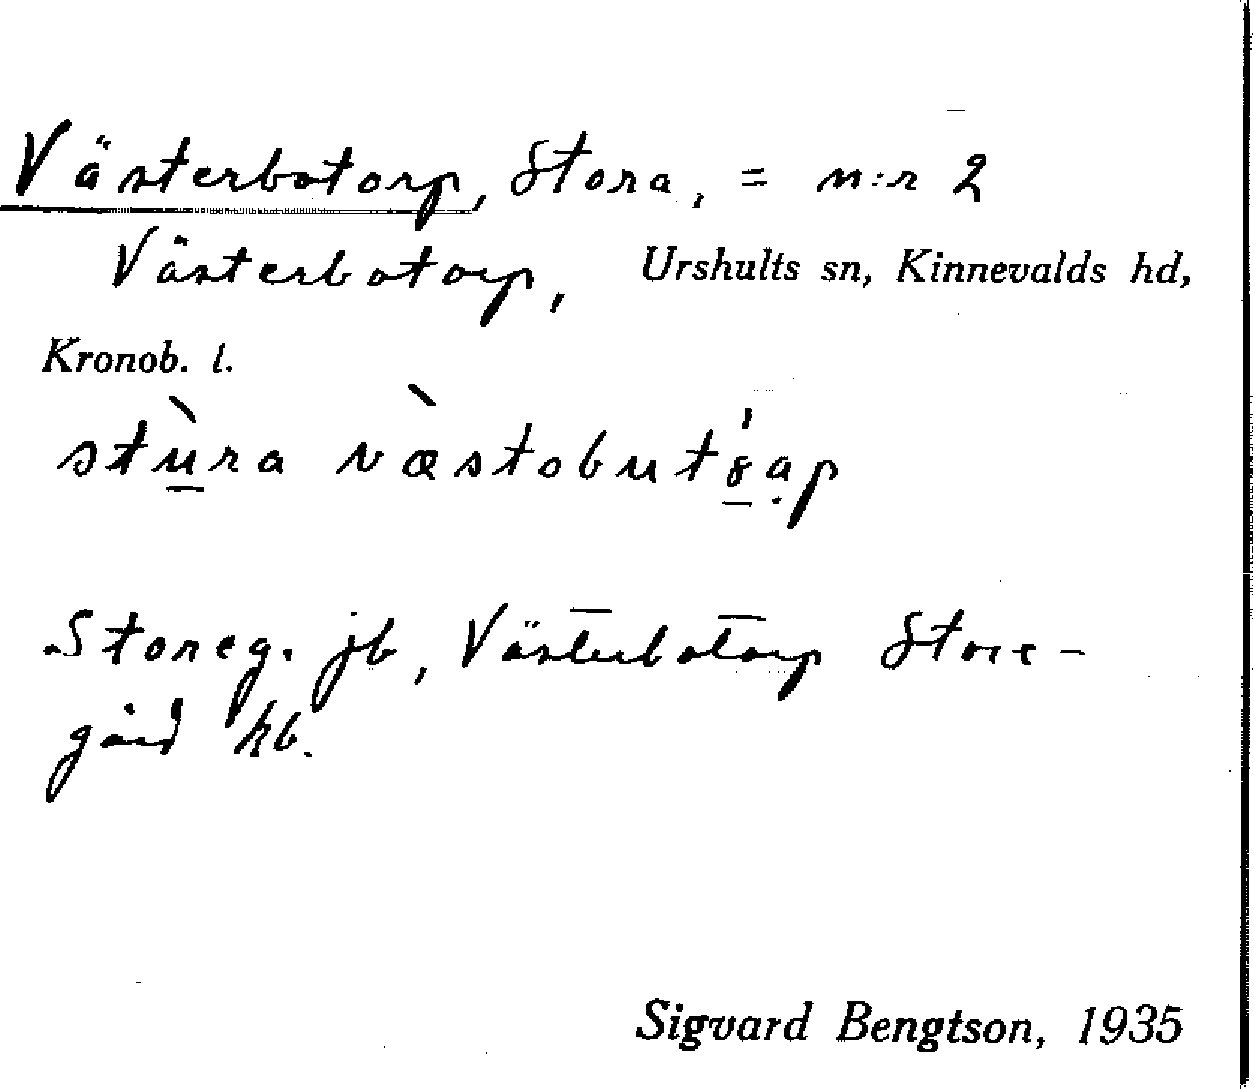 Västerbotorp, Stora, = n:r 2
Västerbotorp, Urshults sn, Kinnevalds hd,
Kronob. l.
stùra væstobutɞ́ap
Storeg. jb, Västerbotorp Store-
gård hb.
Sigvard Bengtson, 1935